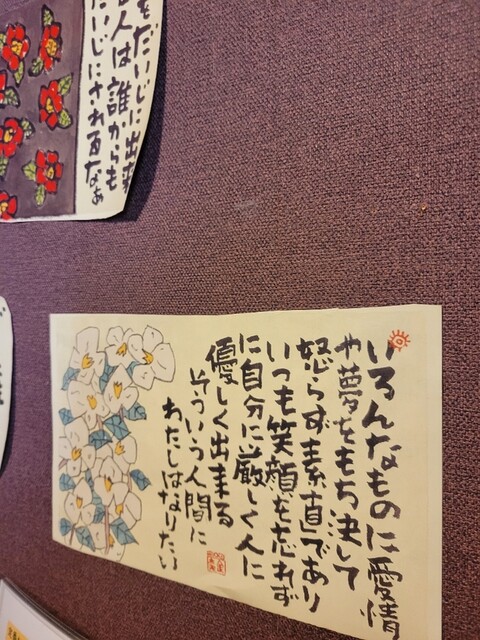 をだいじに出来
人は誰からも
いじにされるなぁ
いろんなものに愛情
や夢をもち決して
怒らず素直であり
いつも笑顔を忘れず
に自分に厳しく人に
優しく出来る
そういう人間に
わたしはなりたい